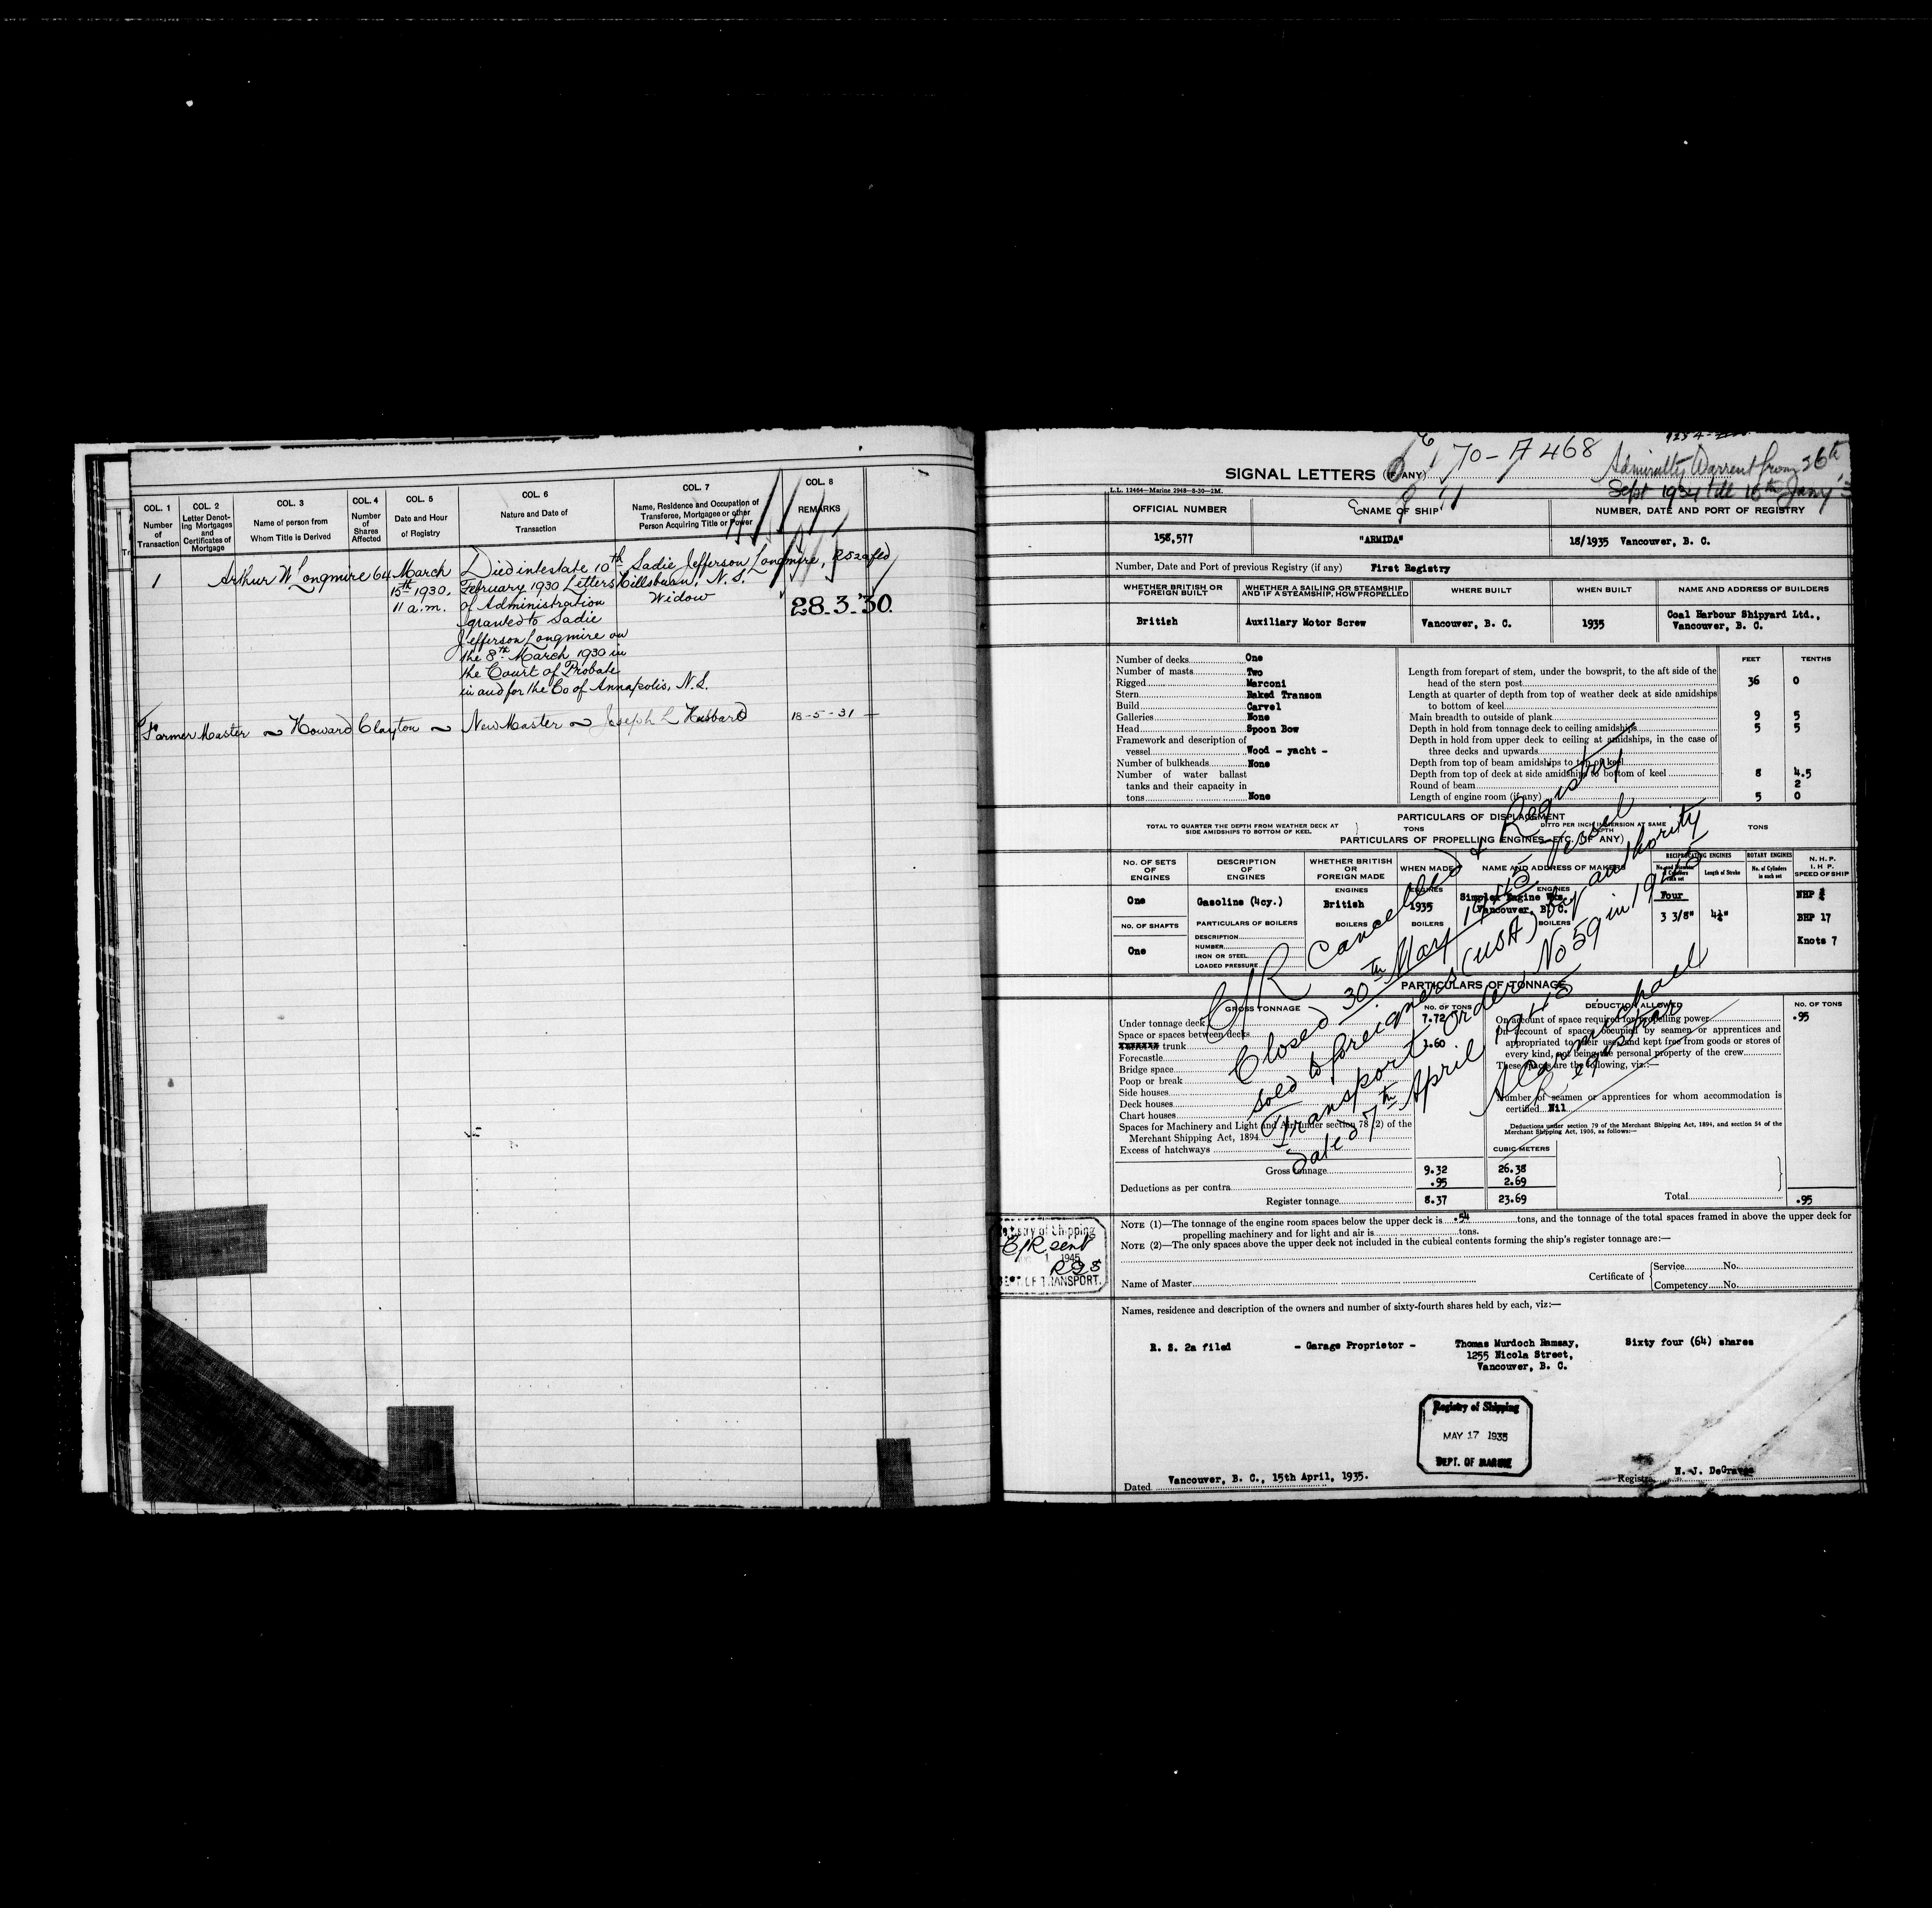 COL. 1
Number
of
Transaction
COL. 2
Letter Denot-
ing Mortgages
and
Certificates of
Mortgage
COL. 3
Name of person from
Whom Title is Derived
COL. 4
Number
of
Shares
Affected
COL. 5
Date and Hour
of Registry
COL. 6
Nature and Date of
Transaction
COL. 7
Name, Residence and Occupation of
Transferee, Mortgagee or other
Person Acquiring Title or Power
COL. 8
REMARKS
1
Arthur W Longmire
64
March
15th 1930.
11 a.m.
Died intestate 10th
February 1930 Letters
of Administration
granted to Sadie
Jefferson Longmire on
the 8th March 1930 in
the Court of Probate
in and for the Co of Annapolis, N.S.
Sadie Jefferson Longmire,
Hillsburn, N.S.
Widow
RS2a fld
28.3.'30.
Former Master ~ Howard Clayton ~ New Master ~ Joseph L Hubbard 18-5-31 —
70-A 468
Admiralty Warrent from 26th
Sept 1934 till 16th Jany
SIGNAL LETTERS (IF ANY)
L.L. 12464—Marine 2948—8-30—2M.
OFFICIAL NUMBER
NAME OF SHIP
NUMBER, DATE AND PORT OF REGISTRY
158,577
"ARMIDA"
18/1935 Vancouver, B. C.
Number, Date and Port of previous Registry (if any) First Registry
WHETHER BRITISH OR
FOREIGN BUILT
WHETHER A SAILING OR STEAMSHIP
AND IF A STEAMSHIP, HOW PROPELLED
WHERE BUILT
WHEN BUILT
NAME AND ADDRESS OF BUILDERS
British
Auxiliary Motor Screw
Vancouver, B. C.
1935
Coal Harbour Shipyard Ltd.,
Vancouver, B. C.
Number of decks One
Number of masts Two
Rigged Marconi
Stern Raked Transom
Build Carvel
Galleries None
Head Spoon Bow
Framework and description of
vessel Wood - yacht -
Number of bulkheads None
Number of water ballast
tanks and their capacity in
tons None
FEET
TENTHS
Length from forepart of stem, under the bowsprit, to the aft side of the
head of the stern post 36 0
Length at quarter of depth from top of weather deck at side amidships
to bottom of keel
Main breadth to outside of plank 9 5
Depth in hold from tonnage deck to ceiling amidships 5 5
Depth in hold from upper deck to ceiling at amidships, in the case of
three decks and upwards
Depth from top of beam amidships to top of keel
Depth from top of deck at side amidships to bottom of keel 8 4.5
Round of beam 2
Length of engine room (if any) 5 0
PARTICULARS OF DISPLACEMENT
TOTAL TO QUARTER THE DEPTH FROM WEATHER DECK AT
SIDE AMIDSHIPS TO BOTTOM OF KEEL
TONS
DITTO PER INCH IMMERSION AT SAME
DEPTH
TONS
PARTICULARS OF PROPELLING ENGINES, ETC. (IF ANY)
NO. OF SETS
OF
ENGINES
DESCRIPTION
OF
ENGINES
WHETHER BRITISH
OR
FOREIGN MADE
WHEN MADE
NAME AND ADDRESS OF MAKERS
RECIPROCATING ENGINES
Length of Stroke
ROTARY ENGINES
No. of Cylinders
in each set
N. H. P.
I. H. P.
SPEED OF SHIP
ENGINES
ENGINES
ENGINES
One
Gasoline (4cy.)
British
1935
Simplex Engine Wks.,
Vancouver, B. C.
Four
3 3/8"
4½"
NHP
BHP 17
Knots 7
NO. OF SHAFTS
PARTICULARS OF BOILERS
BOILERS
BOILERS
BOILERS
One
DESCRIPTION
NUMBER
IRON OR STEEL
LOADED PRESSURE
C/R Cancelled & Registry
Closed 30th May 1945 Vessel
sold to foreigners (USA) by authority
Transport Order No 59 in 1945
dated 7th April 1945
A Carmichael
Registrar
PARTICULARS OF TONNAGE
GROSS TONNAGE
NO. OF TONS
DEDUCTION ALLOWED
NO. OF TONS
Under tonnage deck 7.72
Space or spaces between decks
trunk 1.60
Forecastle
Bridge space
Poop or break
Side houses
Deck houses
Chart houses
Spaces for Machinery and Light and Air under section 78 (2) of the
Merchant Shipping Act, 1894
Excess of hatchways
On account of space required for propelling power .95
On account of spaces occupied by seamen or apprentices and
appropriated to their use, and kept free from goods or stores of
every kind, not being the personal property of the crew
These spaces are the following, viz:—
Number of seamen or apprentices for whom accommodation is
certified Nil
Deductions under section 79 of the Merchant Shipping Act, 1894, and section 54 of the
Merchant Shipping Act, 1906, as follows:—
CUBIC METERS
Gross tonnage 9.32 26.38
Deductions as per contra .95 2.69
Register tonnage 8.37 23.69
Total .95
NOTE (1)—The tonnage of the engine room spaces below the upper deck is .54 tons, and the tonnage of the total spaces framed in above the upper deck for
propelling machinery and for light and air is tons.
NOTE (2)—The only spaces above the upper deck not included in the cubical contents forming the ship's register tonnage are:—
Registry of Shipping
C/R sent
1 1945
RGS
DEPT. OF TRANSPORT.
Name of Master
Certificate of
Service No.
Competency No.
Names, residence and description of the owners and number of sixty-fourth shares held by each, viz:—
R. S. 2a filed
- Garage Proprietor -
Thomas Murdoch Ramsay,
1255 Nicola Street,
Vancouver, B. C.
Sixty four (64) shares
Registry of Shipping
MAY 17 1935
DEPT. OF MARINE
Dated Vancouver, B. C., 15th April, 1935.
Registrar N. J. DeGraves